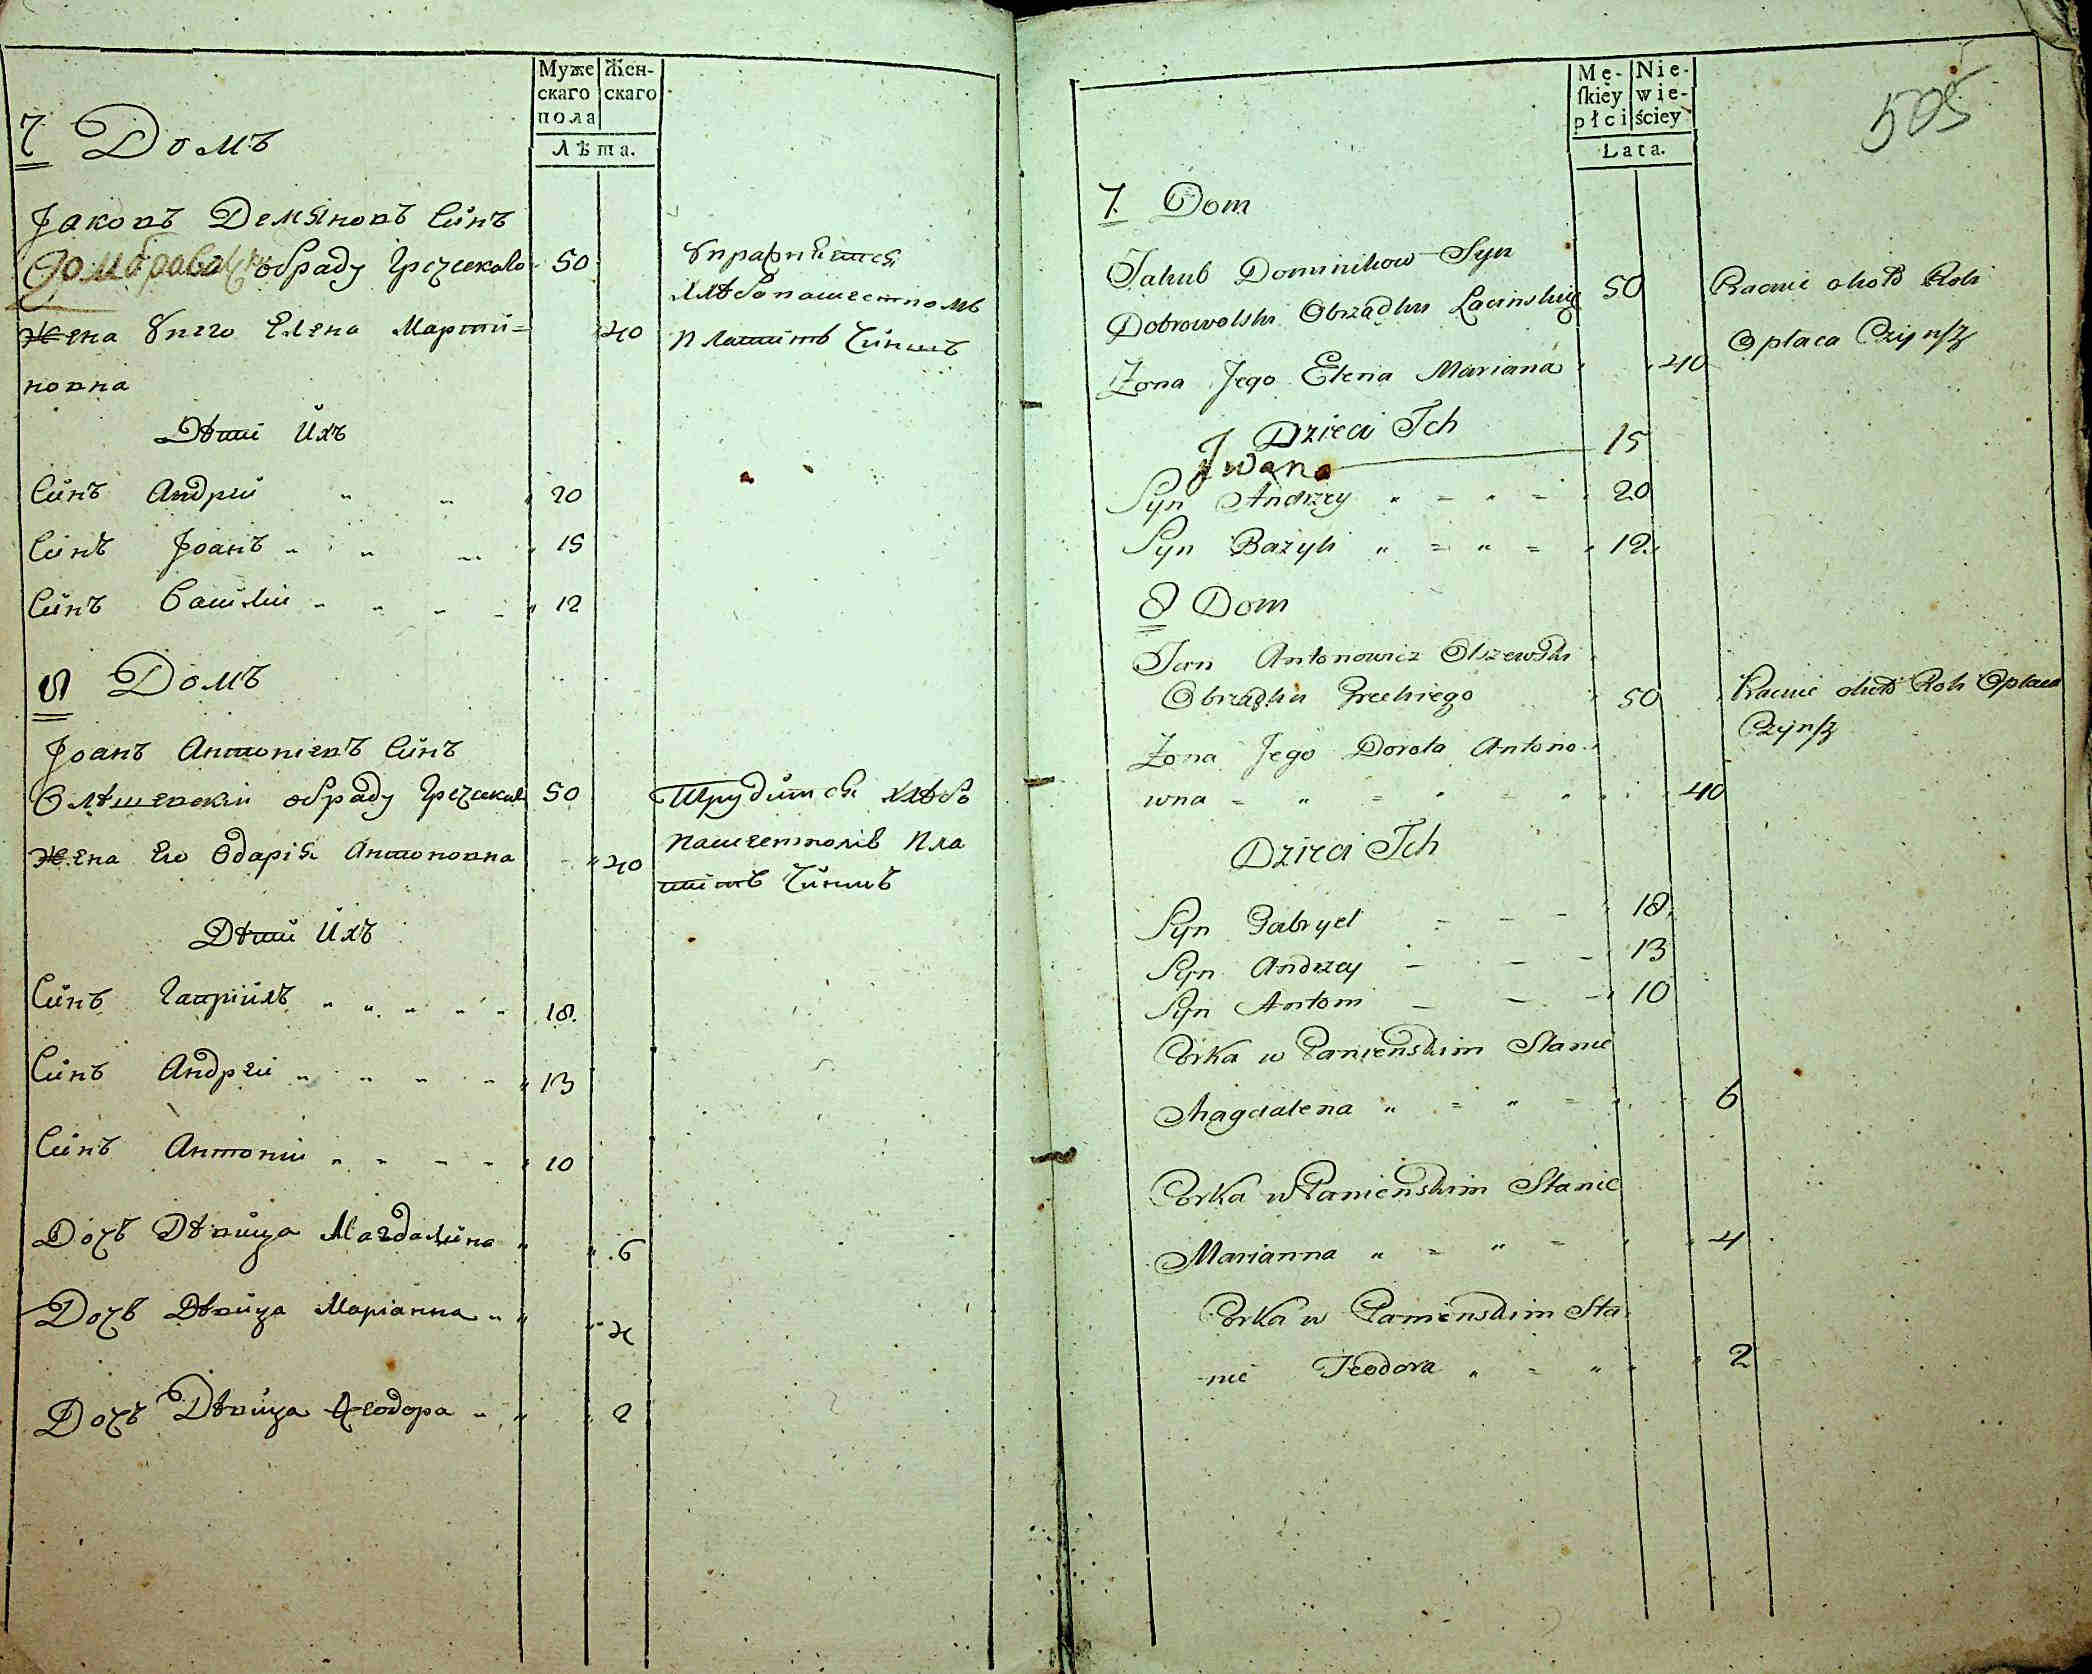 Муже Жен-
скаго скаго
пола
Лѣта.
7 Домъ
Іаковъ Демяновъ Синъ
Домбравски обраду Греческаго 50
Упражняется
хлебопашествомъ
Жена Унего Елена Марти= 40
платитъ Чиншъ
новна
Дѣти Ихъ
Синъ Андрей 20
Синъ Іоанъ 15
Синъ Василій 12
8 Домъ
Іоанъ Антоніевъ Синъ
Олѣшевскій обраду Греческаго 50
Трудится хлѣбо
Жена Его Одарія Антоновна 40
пашествомъ Пла
титъ Чиншъ
Дѣти Ихъ
Синъ Гавріилъ 18
Синъ Андрей 13
Синъ Антоній 10
Дочъ Дѣвица Магдалина 6
Дочъ Дѣвица Маріанна 4
Дочъ Дѣвица Ѳеодора 2
Mę- Nie-
skiey wie-
płci ściey
Lata.
505
7. Dom
Jakub Dominikow Syn
Dobrowolski Obrządku Łacinskieg 50
Pracuie około Roli
Opłaca Czynsz
Zona Jego Elena Mariana 40
Dzieci Ich
Jwan 15
Syn Andrzey 20
Syn Bazyli 12
8 Dom
Jan Antonowicz Olszewski
Obrządku Greckiego 50
Pracuie około Roli Opłaca
Czynsz
Zona Jego Dorota Antono
wna 40
Dzieci Ich
Syn Gabryel 18
Syn Andrzey 13
Syn Antoni 10
Corka w Panieńskim Stanie
Magdalena 6
Corka w Panieńskim Stanie
Marianna 4
Corka w Panieńskim Sta
nie Teodora 2